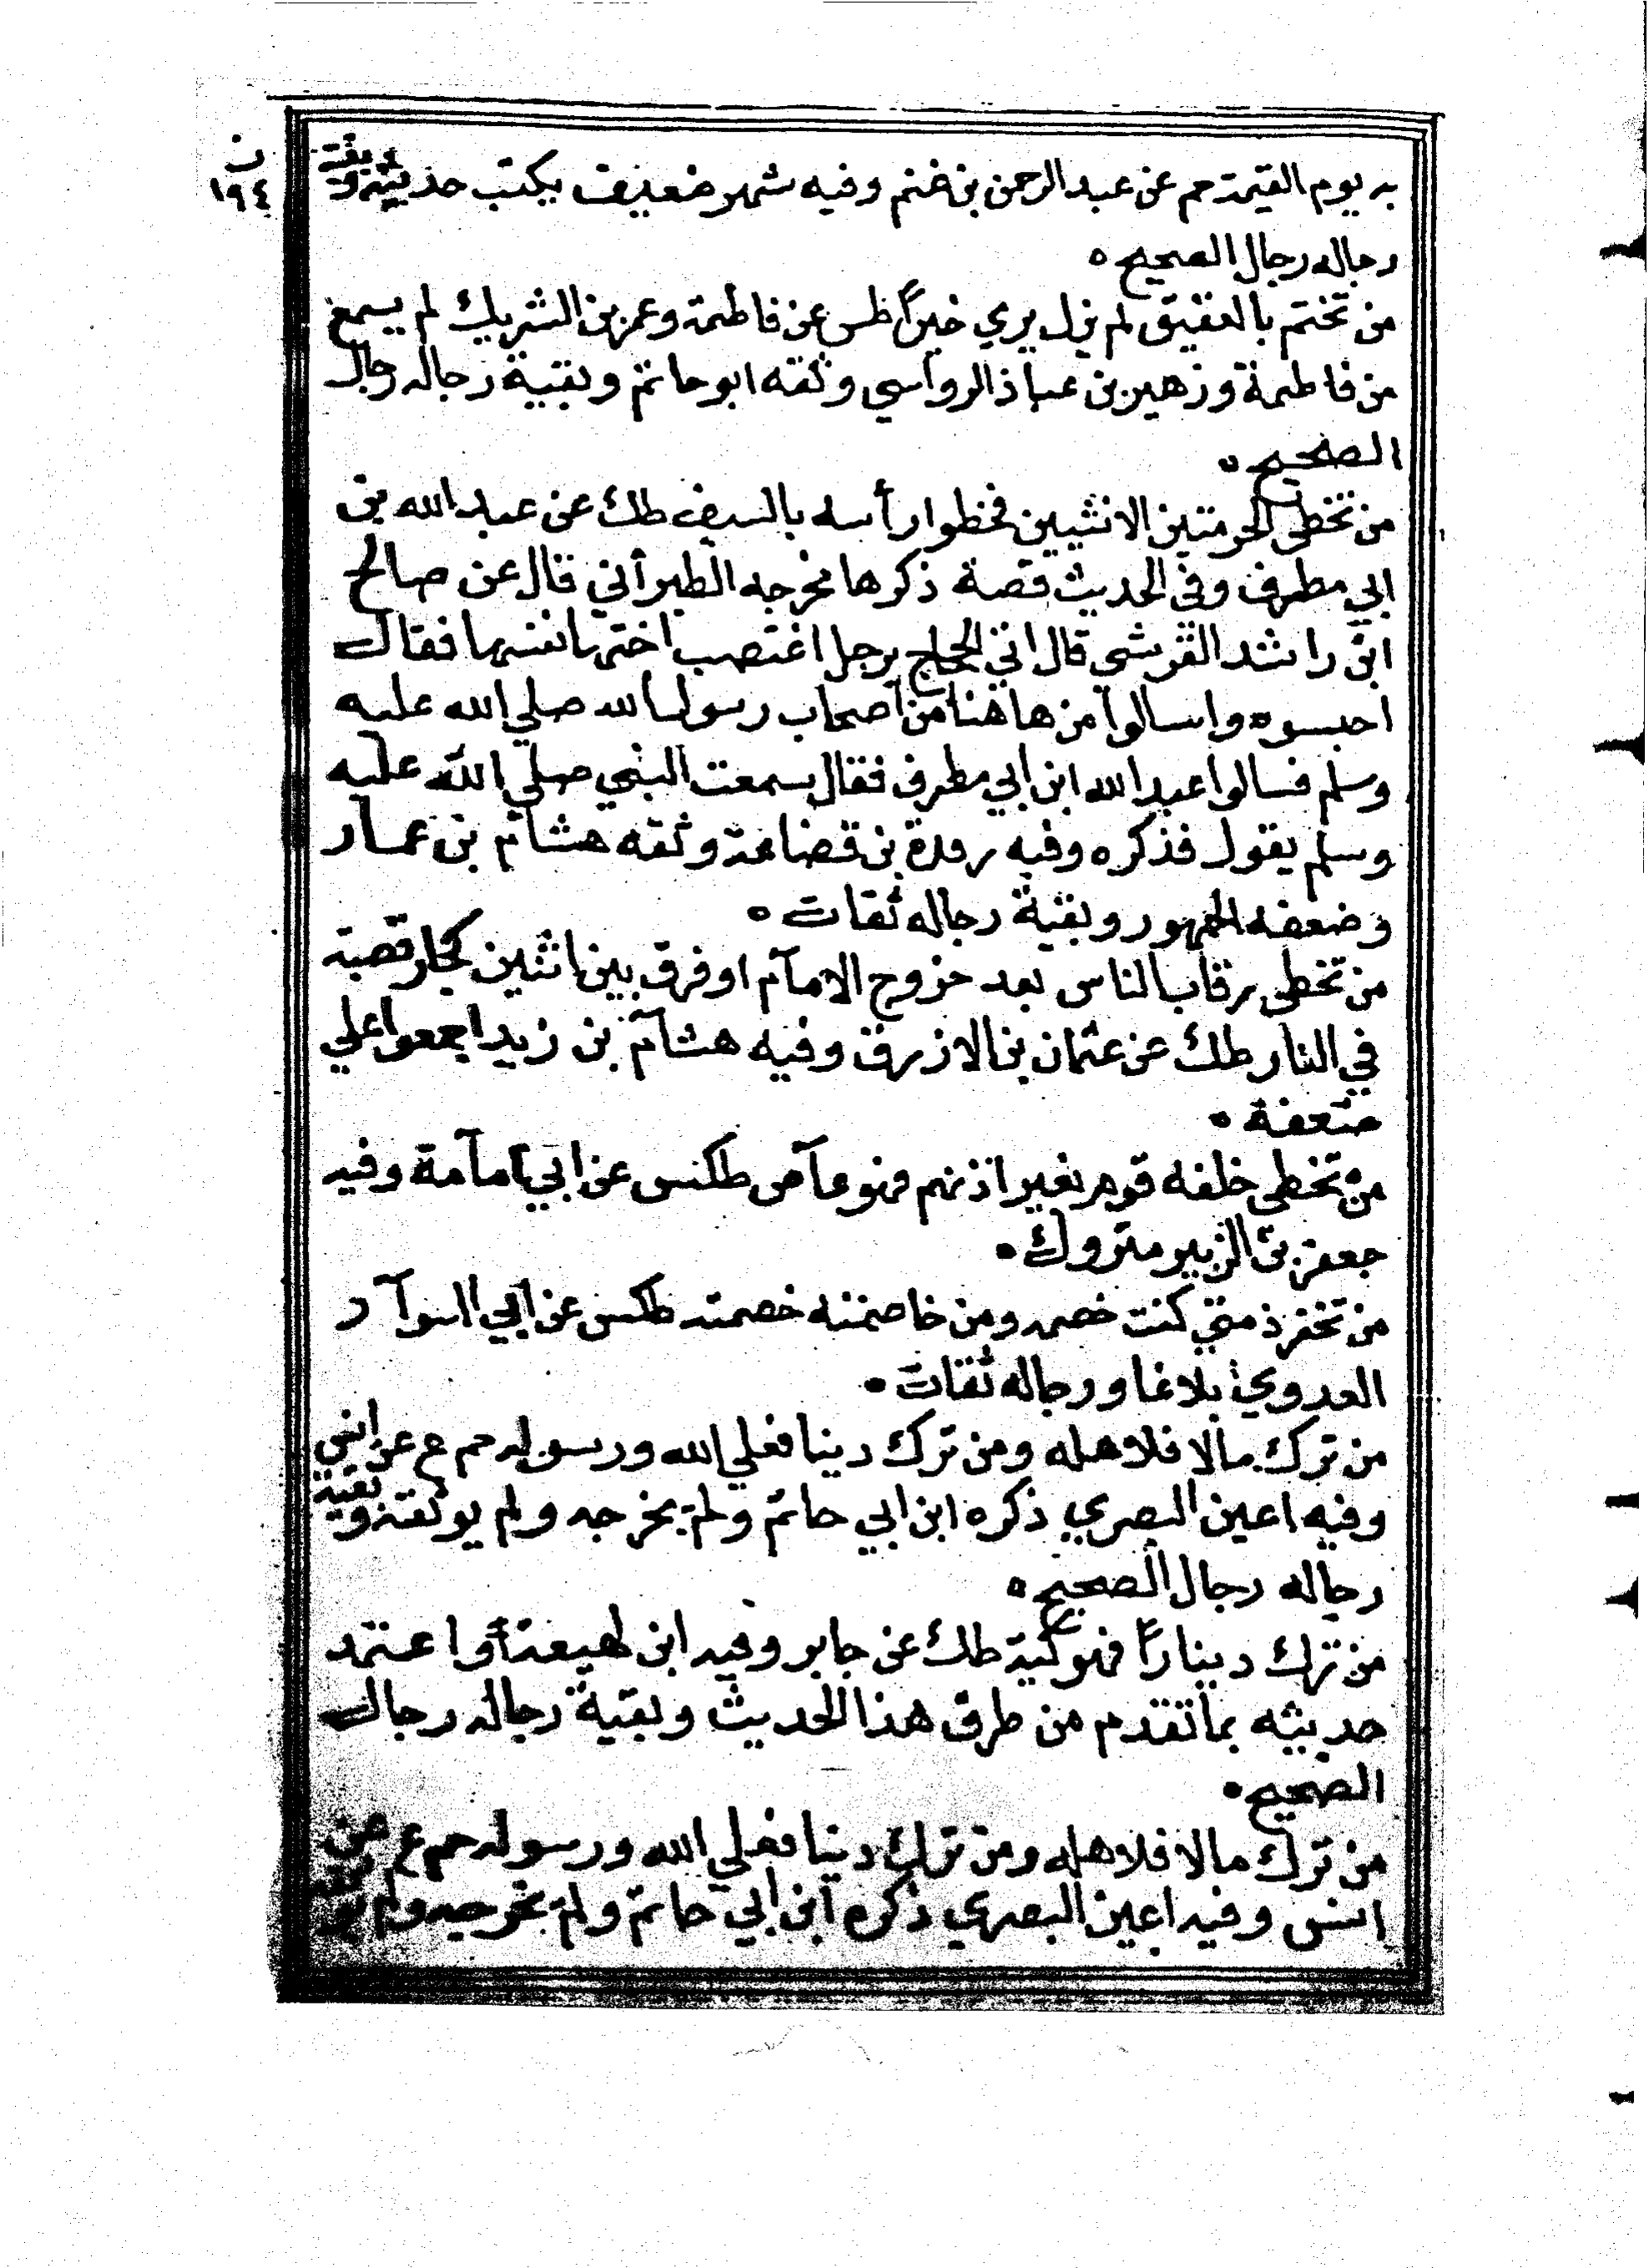 ن
١٩٤
به يوم القيمة حم عن عبد الرحمن بن غنم وفيه شهر ضعيف يكتب حديثه وبقية
رجاله رجال الصحيح ه
من تختم بالعقيق لم يزل يري خيراً طس عن فاطمة وعمر بن الشريك لم يسمع
من فاطمة وزهير بن عباد الرواسي وثقه ابو حاتم وبقية رجاله رجال
الصحيح ه
من تخطى الحرمتين الانثيين فخطوا رأسه بالسيف طك عن عبد الله بن
ابي مطرف وفي الحديث قصة ذكرها مخرجه الطبراني قال عن صالح
ابن راشد القرشي قال اتي الحجاج برجل اغتصب اخته نفسها فقال
احبسوه واسالوا من هاهنا من اصحاب رسول الله صلي الله عليه
وسلم فسالوا عبد الله ابن ابي مطرف فقال سمعت النبي صلي الله عليه
وسلم يقول فذكره وفيه رفدة بن قضاعة وثقه هشام بن عمار
وضعفه الجمهور وبقية رجاله ثقات ه
من تخطى رقاب الناس بعد خروج الامام او فرق بين اثنين كجار قصبه
في النار طك عن عثمان بن الازرق وفيه هشام بن زيد اجمعوا علي
ضعفة ه
من تخطى خلفه قوم بغير اذنهم فهو عاص طكس عن ابي امامة وفيه
جعفر بن الزبير متروك ه
من تخفر ذمتي كنت خصمه ومن خاصمته خصمته طكس عن ابي السوار
العدوي بلاغا ورجاله ثقات ه
من ترك مالا فلاهله ومن ترك دينا فعلي الله ورسوله حم ع عن انس
وفيه اعين البصري ذكره ابن ابي حاتم ولم يخرجه ولم يوثقه وبقية
رجاله رجال الصحيح ه
من ترك ديناراً فهو كية طك عن جابر وفيه ابن لهيعة واعتمد
حديثه بما تقدم من طرق هذا الحديث وبقية رجاله رجال
الصحيح ه
من ترك مالا فلاهله ومن ترك دينا فعلي الله ورسوله حم ع عن
انس وفيه اعين البصري ذكره ابن ابي حاتم ولم يخرجه ولم